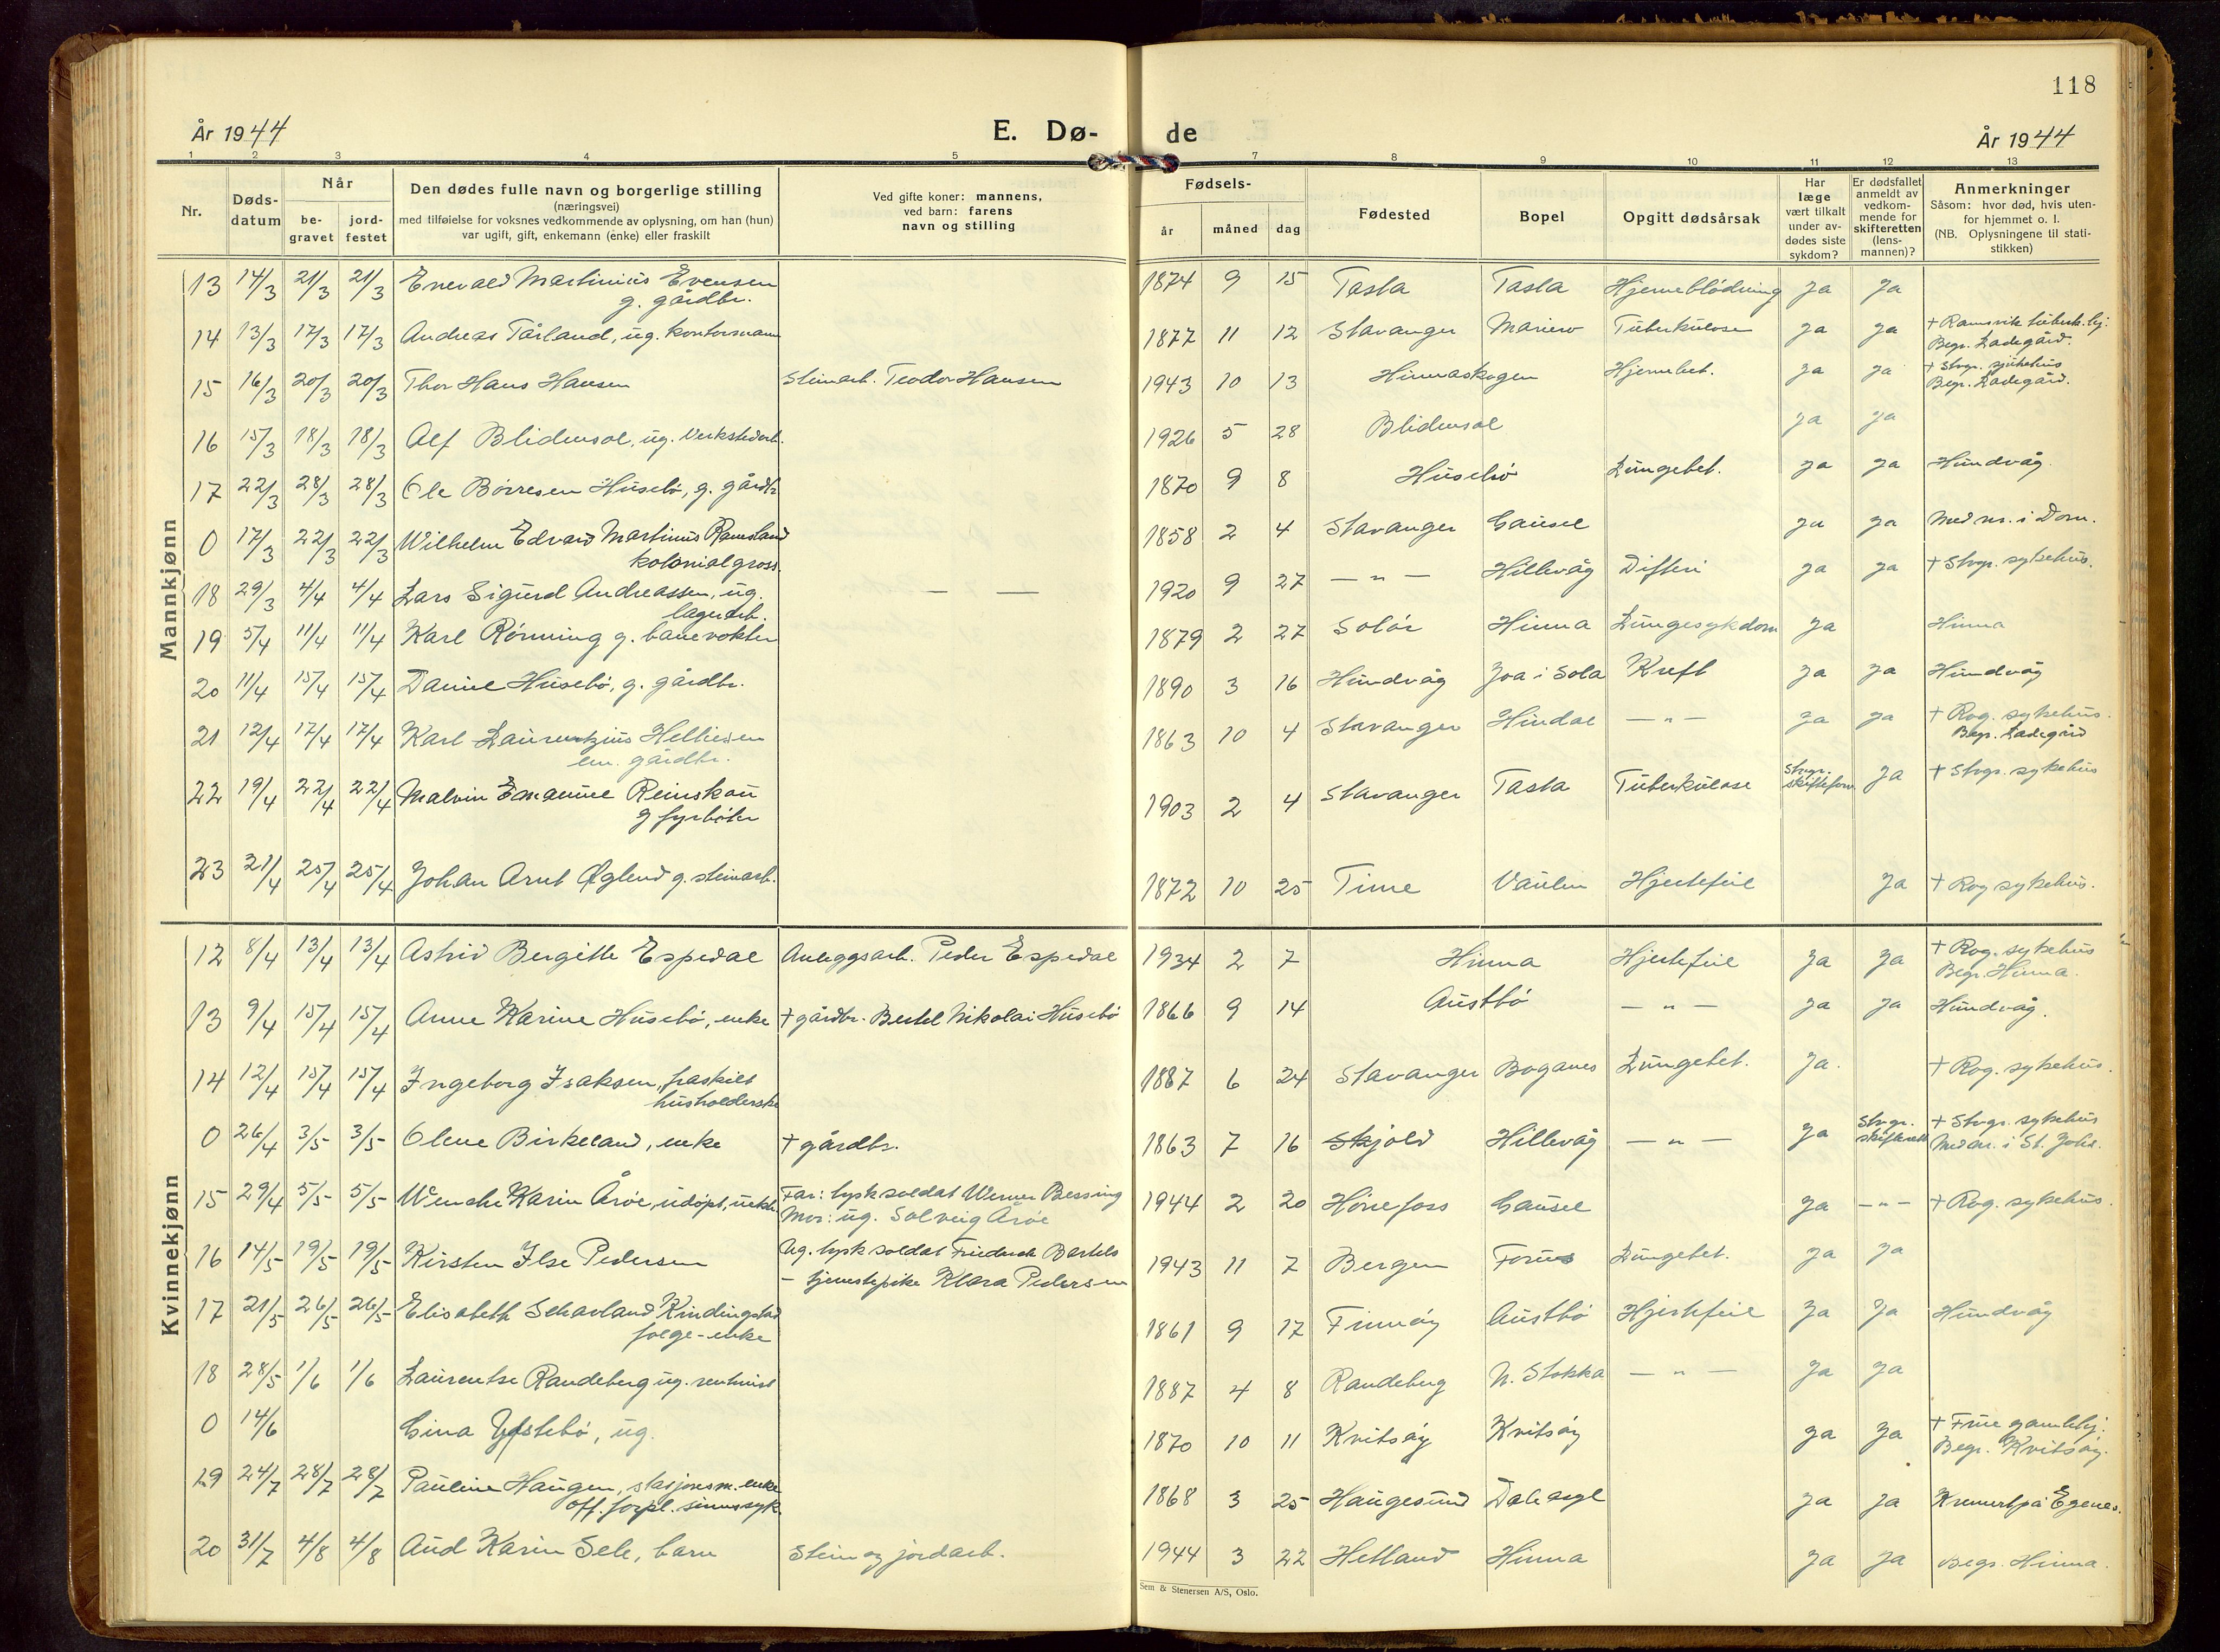 118
År 1944
E. Dø-
de
År 1944
1 2 3 4 5 7 8 9 10 11 12 13
Nr.
Døds-
datum
Når
be-
gravet
jord-
festet
Den dødes fulle navn og borgerlige stilling
(næringsvei)
med tilføielse for voksnes vedkommende av oplysning, om han (hun)
var ugift, gift, enkemann (enke) eller fraskilt
Ved gifte koner: mannens,
ved barn: farens
navn og stilling
Fødsels-
år måned dag
Fødested
Bopel
Opgitt dødsårsak
Har
læge
vært tilkalt
under av-
dødes siste
sykdom?
Er dødsfallet
anmeldt av
vedkom-
mende for
skifteretten
(lens-
mannen)?
Anmerkninger
Såsom: hvor død, hvis uten-
for hjemmet o. l.
(NB. Oplysningene til stati-
stikken)
Mannkjønn
13 14/3 21/3 21/3 Enevald Martinius Evensen 1874 9 15 Tasta Tasta Hjerneblødning Ja Ja
g. gårdbr.
14 13/3 17/3 17/3 Andreas Tårland, ug. kontormann 1877 11 12 Stavanger Mariero Tuberkulose Ja Ja + Ramsvik tuberk.hj.
Begr. Ladegård.
15 16/3 20/3 20/3 Thor Hans Hansen Steinarb. Teodor Hansen 1943 10 13 Hinnaskogen Hjernebet. Ja Ja + Stvgr. sjukehus
Begr. Ladegård.
16 15/3 18/3 18/3 Alf Blidensol, ug. Verkstedarb. 1926 5 28 Blidensol Ja Ja
17 22/3 28/3 28/3 Ole Børresen Husebø, g. gårdb. 1870 9 8 Husebø Lungebet. Ja Ja Hundvåg.
0 17/3 22/3 22/3 Wilhelm Edvard Martinus Ramsland 1858 2 4 Stavanger Gausel Ja Ja Med nr. i Dom.
kolonialgross.
18 29/3 4/4 4/4 Lars Sigurd Andreassen, ug. — — 1920 9 27 — " — Hillevåg Difteri Ja Ja + Stvgr. sykehus.
lagerarb.
19 5/4 11/4 11/4 Karl Rønning g. banevokter 1879 2 27 Solør Hinna Lungesykdom Ja Hinna
20 11/4 15/4 15/4 Daniel Husebø, g. gårdbr. 1890 3 16 Hundvåg Joa i Sola Kreft Ja Ja Hundvåg
21 12/4 17/4 17/4 Karl Laurentzius Helliesen 1863 10 4 Stavanger Hindal — " — Ja Ja + Rog. sykehus.
em. gårdbr.
Begr. Ladegård
22 19/4 22/4 22/4 Malvin Emanuel Reinskau 1903 2 4 Stavanger Tasta Tuberkulose Stvgr. skifteforv. Ja + Stvgr. sykehus
g fyrbøter
23 21/4 25/4 25/4 Johan Arnt Øglend g. steinarb. 1872 10 25 Time Vaulen Hjertefeil Ja + Rog sykehus.
Kvinnekjønn
12 8/4 13/4 13/4 Astrid Bergitte Espedal Anleggsarb. Peder Espedal 1934 2 7 Hinna Hjertefeil Ja Ja + Rog. sykehus
Begr. Hinna.
13 9/4 15/4 15/4 Anne Karine Husebø, enke + gårdbr. Bertel Nikolai Husebø 1866 9 14 Austbø — " — Ja Ja Hundvåg.
14 12/4 15/4 15/4 Ingeborg Isaksen, fraskilt 1887 6 24 Stavanger Boganes Lungebet. Ja. + Rog. sykehus.
husholderske
0 26/4 3/5 3/5 Olene Birkeland, enke + gårdbr. 1863 7 16 Skjold Hillevåg — " — Ja Stvgr. skifterett + Stvgr. sykehus
Med nr. i St. Joh.
15 29/4 5/5 5/5 Wenche Karin Årøe, udøpt, uekte Far: tysk soldat Werner Bessing 1944 2 20 Hønefoss Gausel Ja — " — + Rog. sykehus.
Mor: ug. Solveig Årøe
16 14/5 19/5 19/5 Kirsten Ilse Pedersen Ug. tysk soldat Friedrich Bartels 1943 11 7 Bergen Forus Lungebet. Ja Ja
— tjenestepike Klara Pedersen
17 21/5 26/5 26/5 Elisabeth Scharland Kindingstad 1861 9 17 Finnøy Austbø Hjertefeil Ja Ja Hundvåg
følge-enke
18 28/5 1/6 1/6 Laurentse Randeberg ug. rentenist 1887 4 8 Randeberg N. Stokka — " — Ja Ja
0 14/6 Gina Ydstebø, ug. 1870 10 11 Kvitsøy Kvitsøy Ja Ja + Frue gamlehj:
Begr. Kvitsøy.
19 24/7 28/7 28/7 Pauline Haugen, stasjonsm. enke 1868 3 25 Haugesund Dale asyl Ja Ja Kremert på Egenes.
off. forpl. sinnssyk.
20 31/7 4/8 4/8 Aud Karin Sele, barn Stein og jordarb. 1944 3 22 Hetland Hinna Ja Ja Begr. Hinna.
Sem & Stenersen A/S, Oslo.